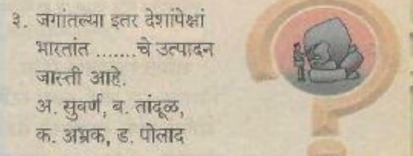 ३. जगांतल्या इतर देशांपेक्षां
भारतांत .......चे उत्पादन
जास्ती आहे.
अ. सुवर्ण, ब. तांदूळ,
क. अभ्रक, ड. पोलाद